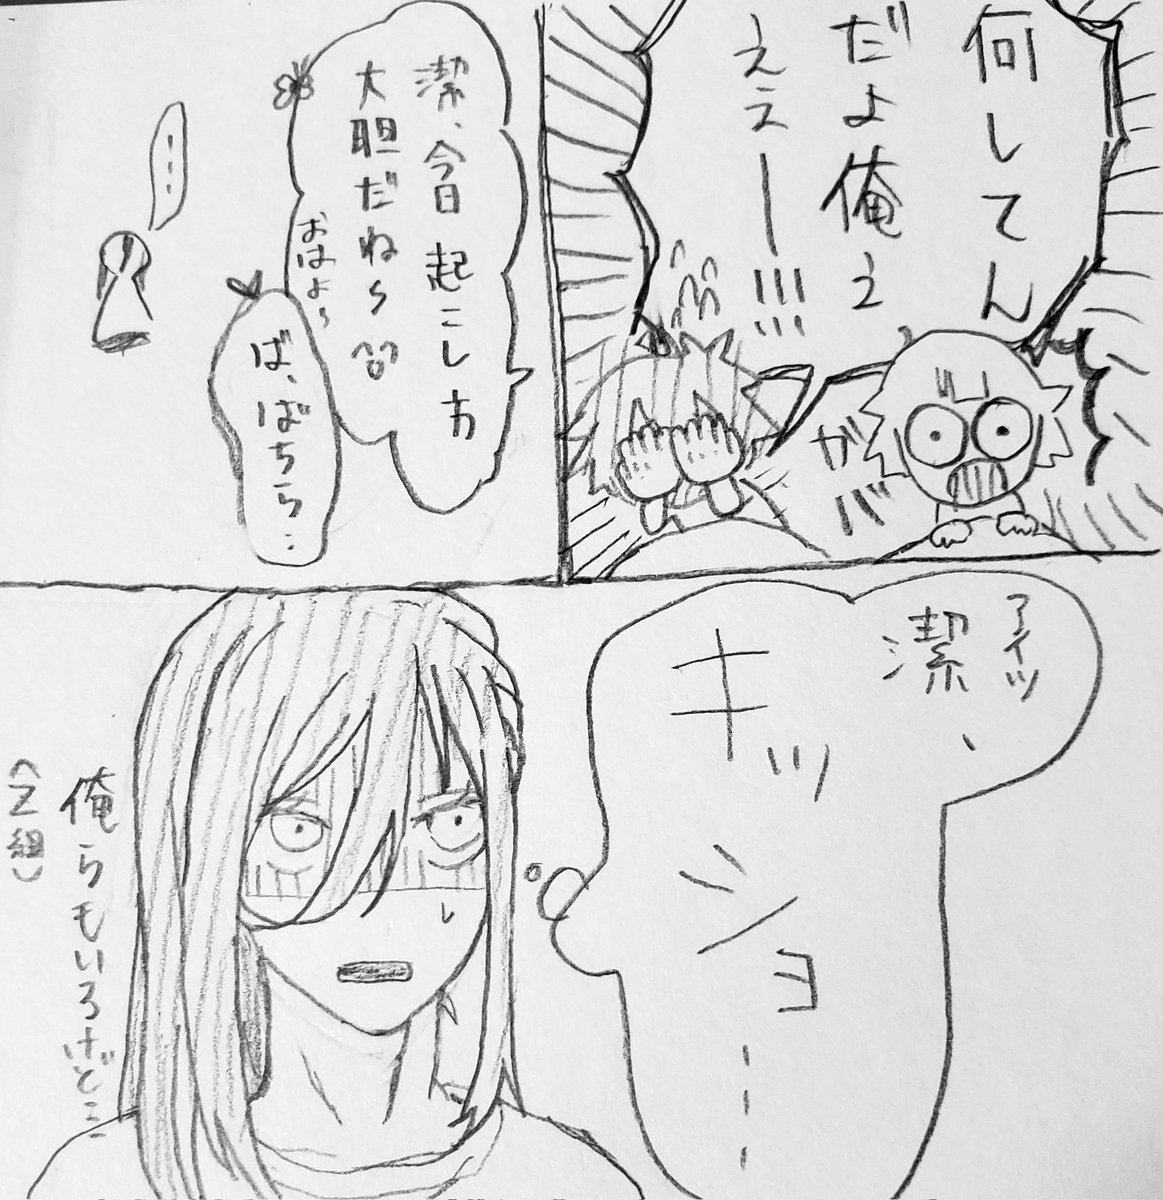 何してん
だよ俺ぇ
ええー!!!
ガバ
潔、今日起こし方
大胆だね〜
おはよ〜
ば、ばちら…
アイツ
潔、
キッショ…
俺らもいるけど…
(Z組)